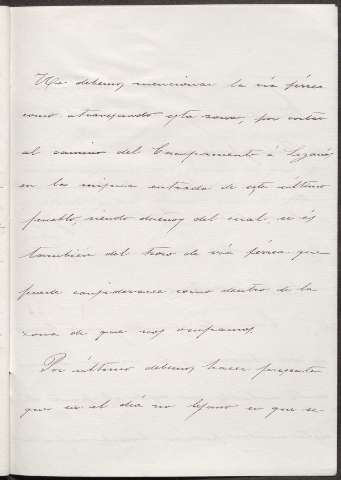 No debemos mencionar la via férrea
como atravesando esta zona, por cortar
al camino del Campamento á Leganés
en la misma entrada de este último
pueblo, siendo dueños del cual, se es
tambien del trozo de via férrea que
puede considerarse como dentro de la
zona de que nos ocupamos
Por último debemos hacer presente
que en el dia no lejano en que se